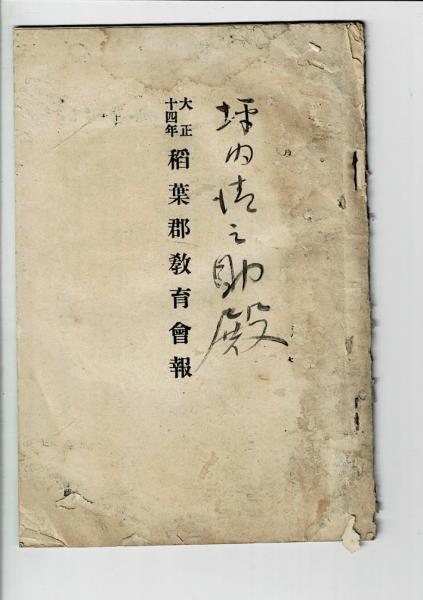 坪内清之助殿
大正十四年 稻葉郡教育會報